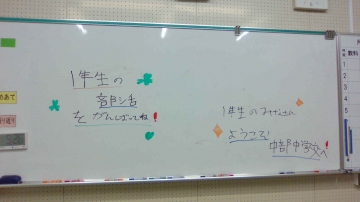 1年生の
部活
をがんばってね!
1年生のみなさん
ようこそ
中部中学校へ!
めあて
教科
1
2
3
4
5
6